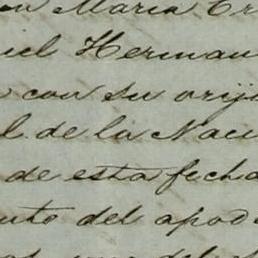 on Maria Er
iel Herman
con su orij
l de la Naci
de esta fecha
uto del apod